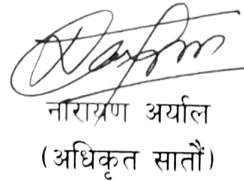 नारायण अर्याल
(अधिकृत सातौं)